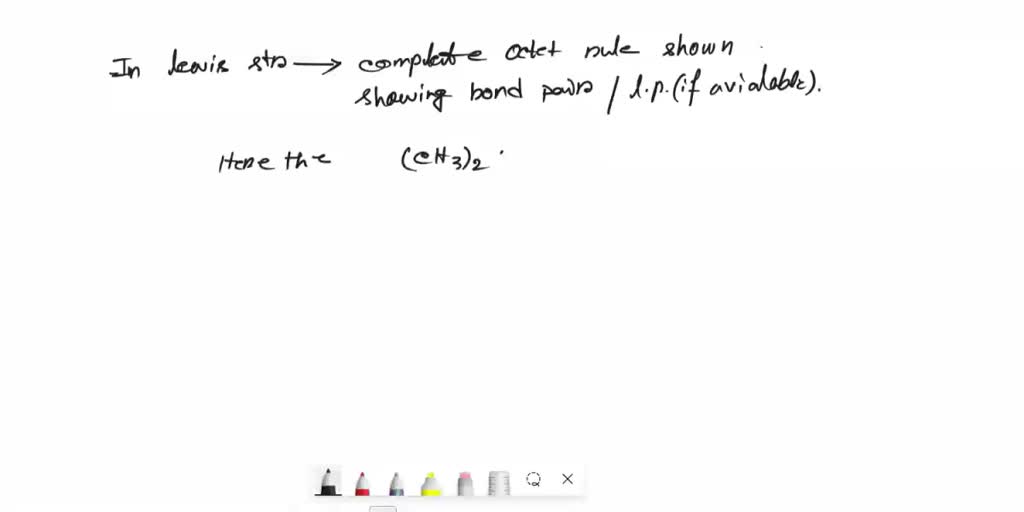 In lewis str → complete octet rule shown
showing bond pairs / l.p. (if avialable).
Here the (CH3)2